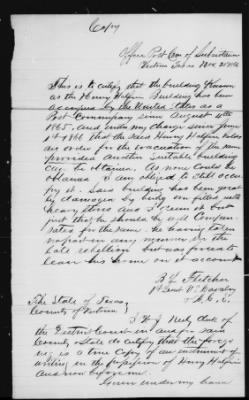 Copy
Office Post Com of Subsistence
Victoria Texas Nov 21st 1866
This is to certify that the building known
as the Henry Halfin Building has been
occupied by the United States as a
Post Commissary since August 4th
1865, and under my charge since
1st 1866 that the said Henry Halfin has
an order for the evacuation of the same
provided another suitable building
can be obtained. As none could be
obtained I am obliged to still occu-
py it. Said building has been great
ly damaged by being filled with
heavy stores and I deem it but
just that he should be well Compen-
sated for the same. He having taken
no part in any manner in the
late rebellion but was forced to
leave his home on it account
B. L. Fletcher
1st Lieut U.S. Cavalry
A. C. S.
The State of Texas
County of Victoria
I Clerk of
the District Court in and for said
County & State do certify that the forego
ing is a true Copy of an instrument of
writing in the possession of Henry Halfin
and now before me.
Given under my hand